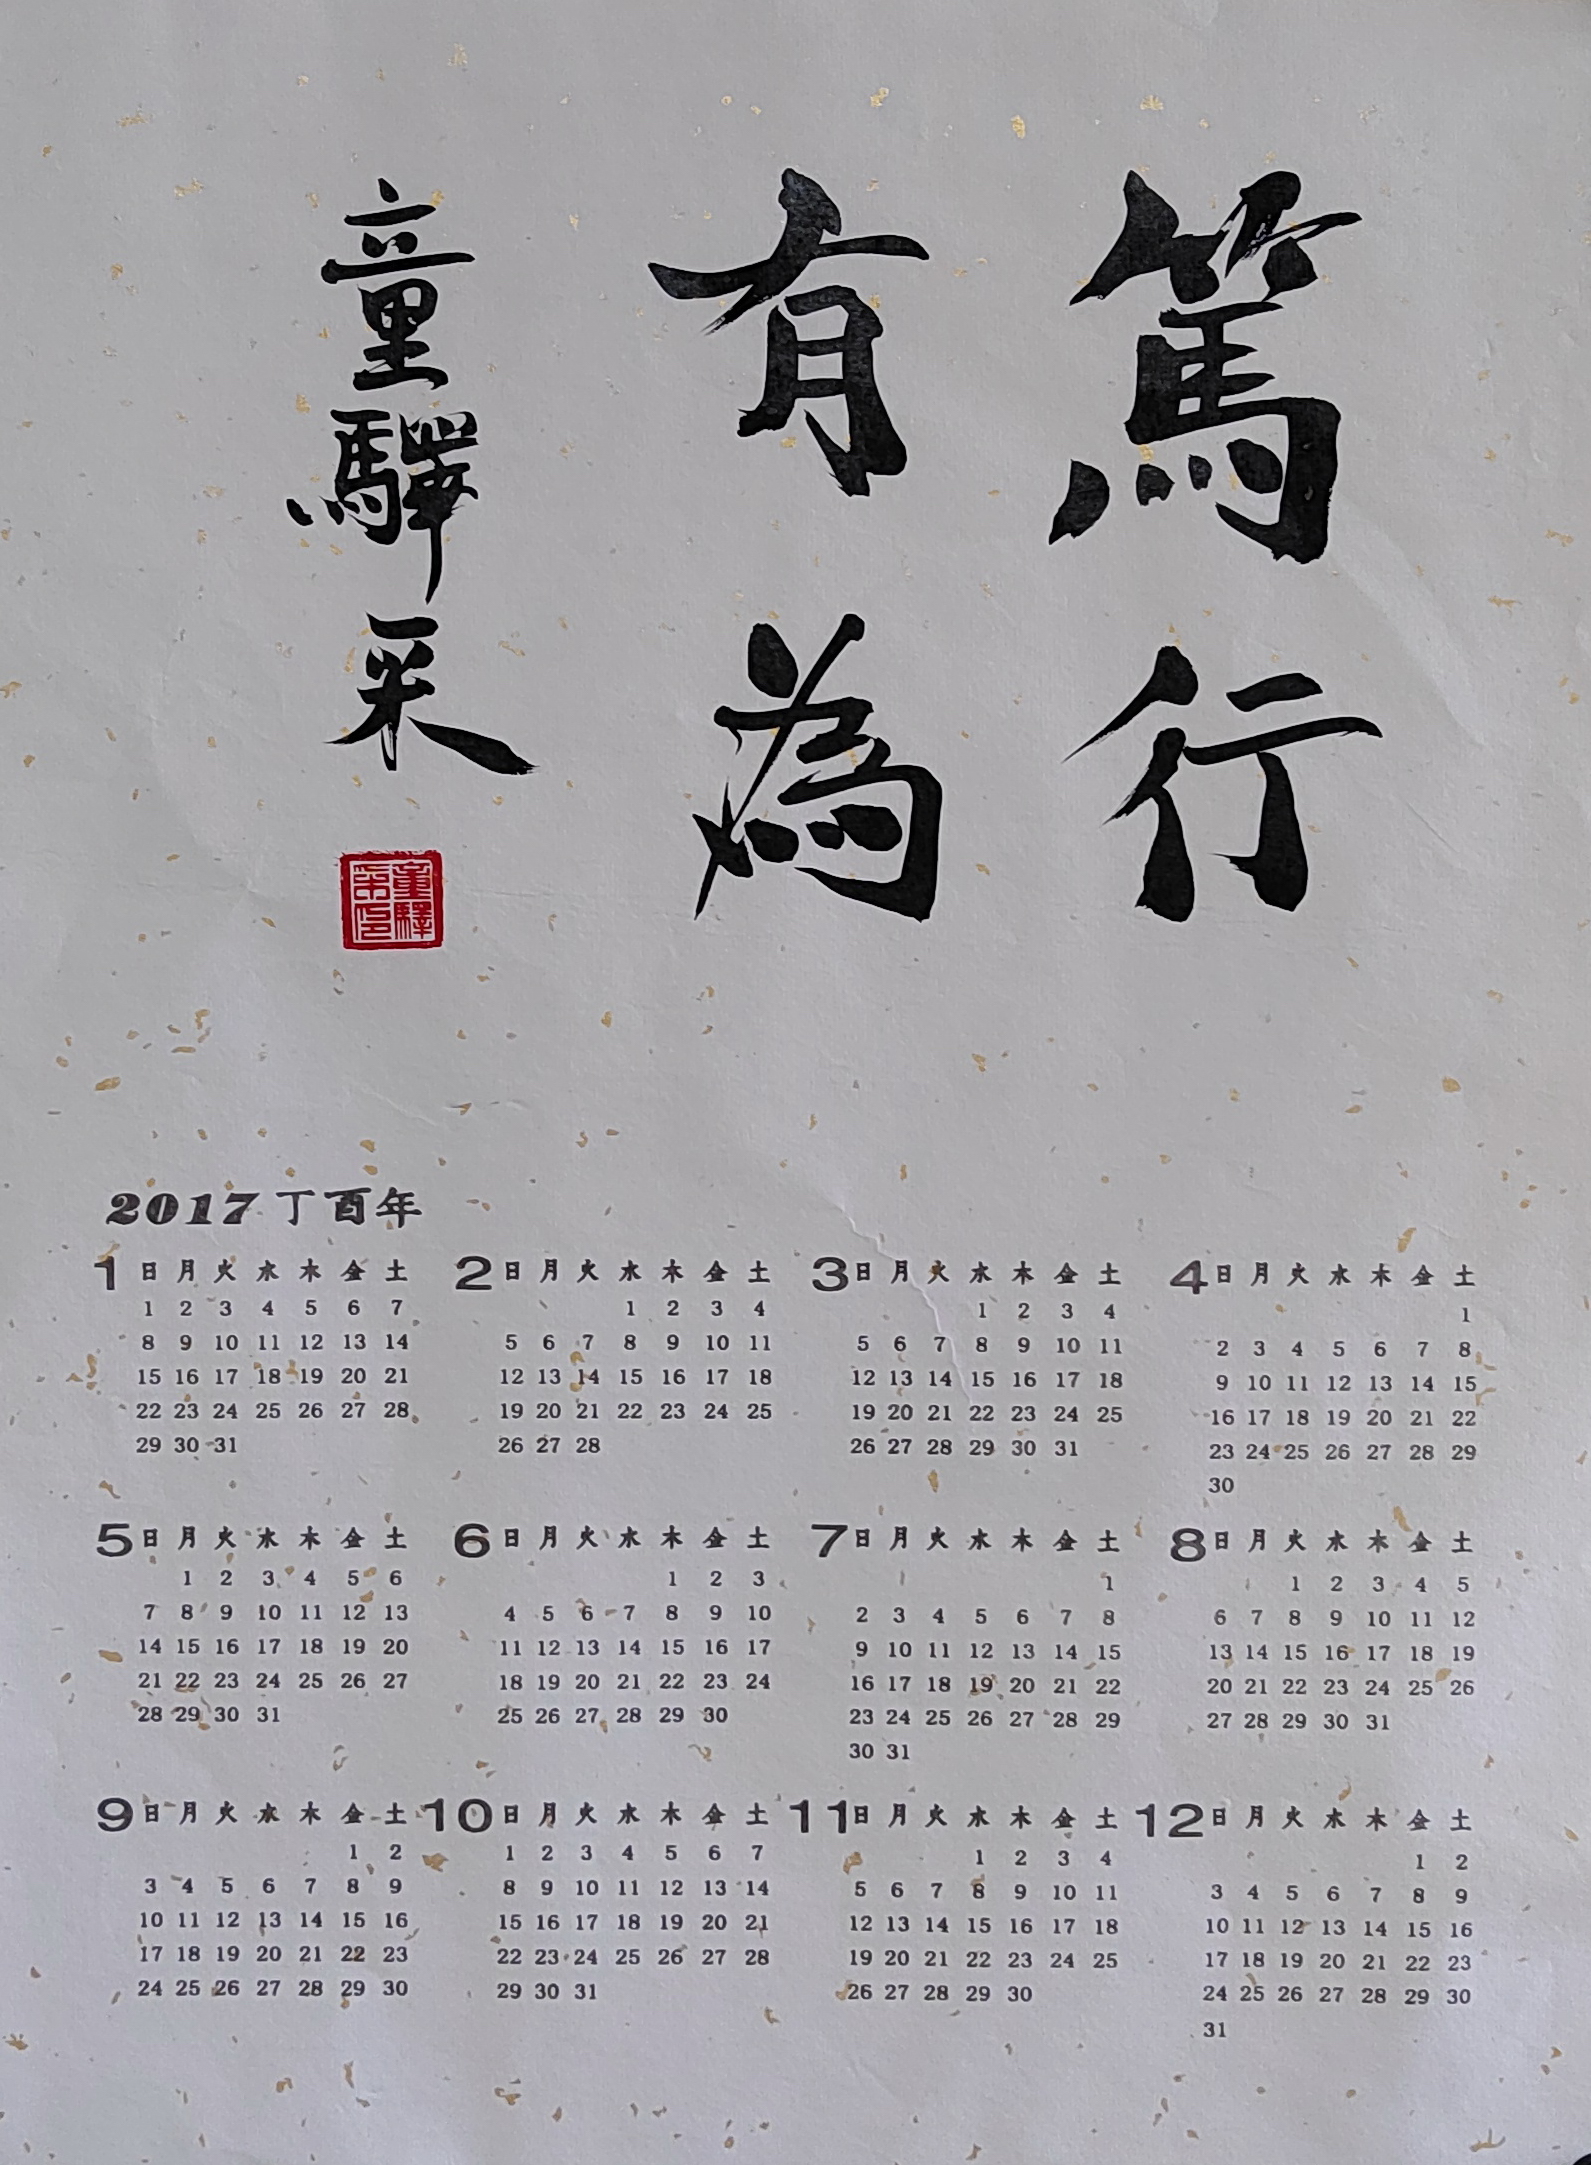 篤行
有為
童驛采
童驛
采印
2017 丁酉年
1 日 月 火 水 木 金 土
1 2 3 4 5 6 7
8 9 10 11 12 13 14
15 16 17 18 19 20 21
22 23 24 25 26 27 28
29 30 31
2 日 月 火 水 木 金 土
1 2 3 4
5 6 7 8 9 10 11
12 13 14 15 16 17 18
19 20 21 22 23 24 25
26 27 28
3 日 月 火 水 木 金 土
1 2 3 4
5 6 7 8 9 10 11
12 13 14 15 16 17 18
19 20 21 22 23 24 25
26 27 28 29 30 31
4 日 月 火 水 木 金 土
1
2 3 4 5 6 7 8
9 10 11 12 13 14 15
16 17 18 19 20 21 22
23 24 25 26 27 28 29
30
5 日 月 火 水 木 金 土
1 2 3 4 5 6
7 8 9 10 11 12 13
14 15 16 17 18 19 20
21 22 23 24 25 26 27
28 29 30 31
6 日 月 火 水 木 金 土
1 2 3
4 5 6 7 8 9 10
11 12 13 14 15 16 17
18 19 20 21 22 23 24
25 26 27 28 29 30
7 日 月 火 水 木 金 土
1
2 3 4 5 6 7 8
9 10 11 12 13 14 15
16 17 18 19 20 21 22
23 24 25 26 27 28 29
30 31
8 日 月 火 水 木 金 土
1 2 3 4 5
6 7 8 9 10 11 12
13 14 15 16 17 18 19
20 21 22 23 24 25 26
27 28 29 30 31
9 日 月 火 水 木 金 土
1 2
3 4 5 6 7 8 9
10 11 12 13 14 15 16
17 18 19 20 21 22 23
24 25 26 27 28 29 30
10 日 月 火 水 木 金 土
1 2 3 4 5 6 7
8 9 10 11 12 13 14
15 16 17 18 19 20 21
22 23 24 25 26 27 28
29 30 31
11 日 月 火 水 木 金 土
1 2 3 4
5 6 7 8 9 10 11
12 13 14 15 16 17 18
19 20 21 22 23 24 25
26 27 28 29 30
12 日 月 火 水 木 金 土
1 2
3 4 5 6 7 8 9
10 11 12 13 14 15 16
17 18 19 20 21 22 23
24 25 26 27 28 29 30
31